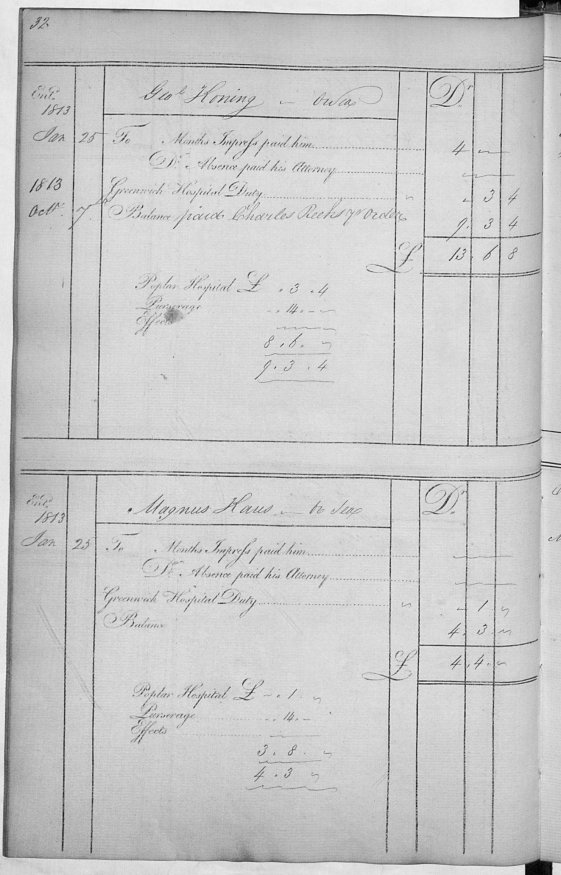 32
Geo.e Honing — Or Sea
Dr
Ent.
1813
Jan 25 To Months Imprest paid him 4 „ „
Do. Absence paid his Attorney
1813 Greenwich Hospital Duty „ 3 4
Octr. 7 Balance paid Charles Reeks pr Order 9. 3 4
£ 13. 6 8
Poplar Hospital £ „ 3. 4
Purserage „ 14. „
Effects
8. 6. „
9. 3. 4
Ent.
1813
Magnus Haus — Or Sea
Dr
Jan 25 To Months Imprest paid him
Do. Absence paid his Attorney
Greenwich Hospital Duty „ 1 „
Balance 4. 3 „
£ 4. 4. „
Poplar Hospital £ „ 1. „
Purserage „ 14. „
Effects
3. 8. „
4. 3 „